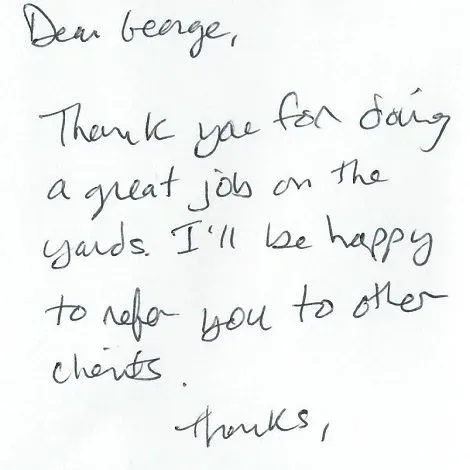 Dear George,
Thank you for doing
a great job on the
yards. I'll be happy
to refer you to other
clients.
Thanks,